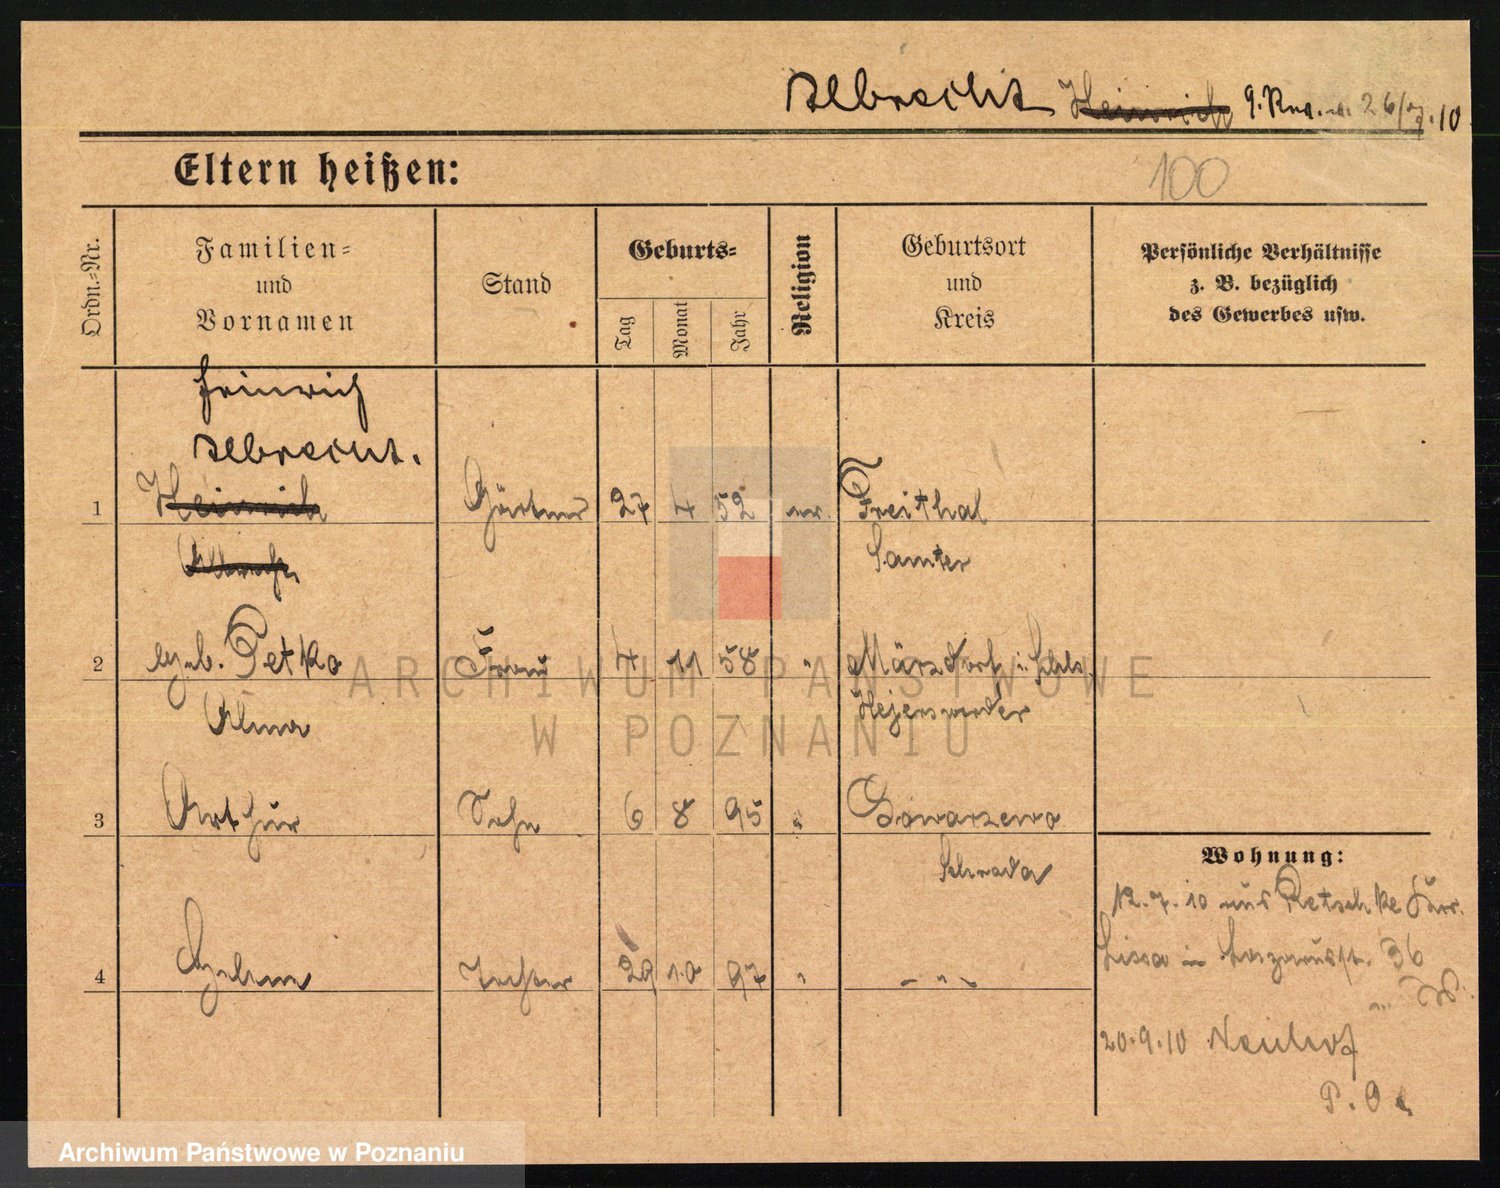 Albrecht Heinrich 9. Kna. v. 26/7.10
Eltern heißen:
100
Ordn.=Nr.
Familien=
und
Vornamen
Stand
Geburts=
Tag
Monat
Jahr
Religion
Geburtsort
und
Kreis
Persönliche Verhältnisse
z. B. bezüglich
des Gewerbes usw.
Heinrich
Albrecht.
1 Heinrich Gärtner 27 4 52 ev. Freithal
Albrecht Samter
2 geb. Petko Frau 7 11 58 " Märzdorf i. Schls.
Alma Hejerswerder
3 Arthur Sohn 6 8 95 " Gowarzewo
Schroda
4 Tochter 29 10 97 " — " —
Wohnung:
12.7.10 aus Retschke
Lissa in 36
20.9.10 Neuhof
P. O.
ARCHIWUM PAŃSTWOWE
W POZNANIU
Archiwum Państwowe w Poznaniu